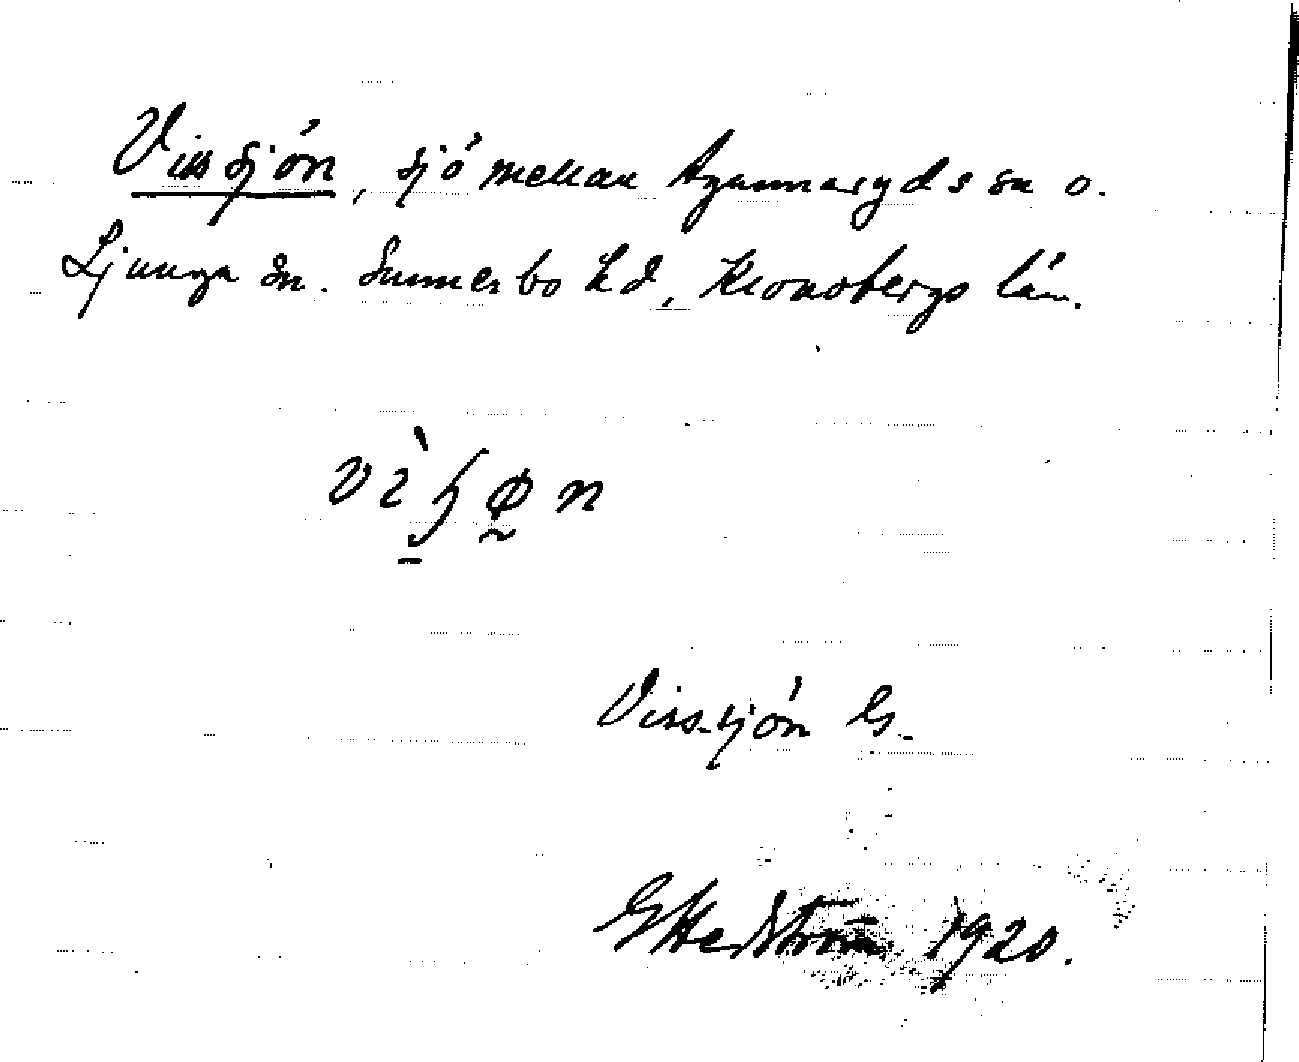 Vissjön, sjö mellan Agunnaryds sn o.
Ljunga sn. Sunnerbo hd, Kronobergs län.
Vissjön G.
G Hedström 1920.